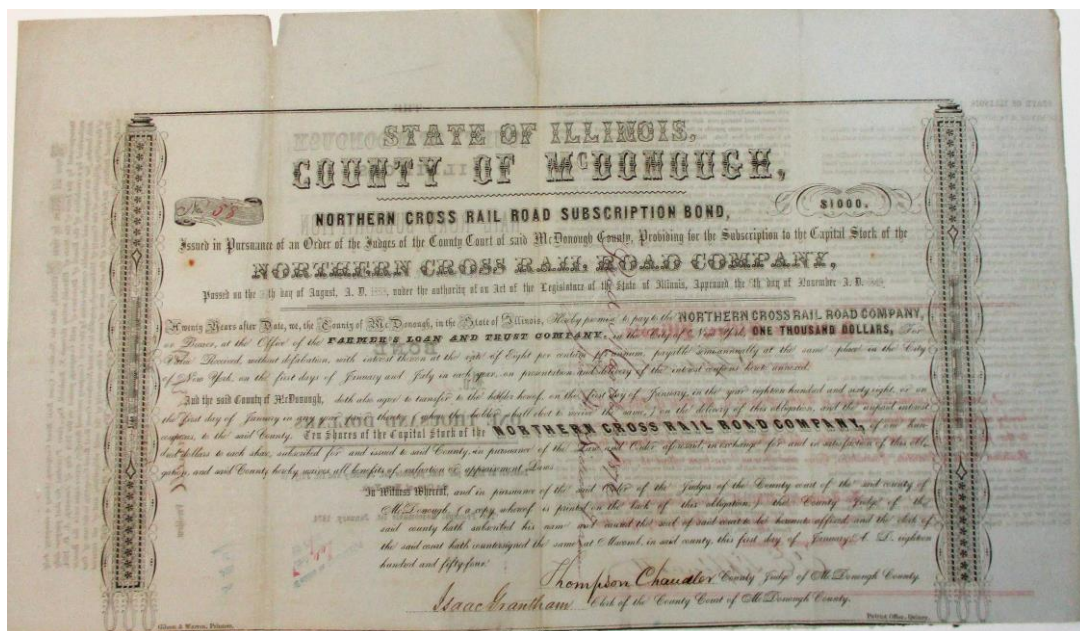 STATE OF ILLINOIS,
COUNTY OF McDONOUGH,
No 53
$1000.
NORTHERN CROSS RAIL ROAD SUBSCRIPTION BOND,
Issued in Pursuance of an Order of the Judges of the County Court of said McDonough County, Providing for the Subscription to the Capital Stock of the
NORTHERN CROSS RAIL ROAD COMPANY,
Passed on the day of August, A. D. under the authority of an Act of the Legislature of the State of Illinois, Approved the 6th day of November A. D.
Twenty Years after Date, we, the County of McDonough, in the State of Illinois, Hereby promise to pay to the NORTHERN CROSS RAIL ROAD COMPANY,
or Bearer, at the Office of the FARMER'S LOAN AND TRUST COMPANY, in the City of New York, ONE THOUSAND DOLLARS, For
Value Received, without defalcation, with interest thereon at the rate of Eight per centum per annum, payable semi-annually at the same place in the City
of New York, on the first days of January and July in each year, on presentation and delivery of the interest coupons hereto annexed.
And the said County of McDonough, doth also agree to transfer to the holder hereof, on the first day of January, in the year eighteen hundred and sixty eight, or on
the first day of January in any year prior thereto, (when the holder shall elect to receive the same,) on the delivery of this obligation, and the unpaid interest
coupons, to the said County. Ten Shares of the Capital Stock of the NORTHERN CROSS RAIL ROAD COMPANY, of one hun-
dred dollars to each share, subscribed for and issued to said County, in pursuance of the Law and Order aforesaid, in exchange for and in satisfaction of this Obli-
gation, and said County hereby waives all benefits of valuation or appraisement Laws.
In Witness Whereof, and in pursuance of the said Order of the Judges of the County court of the said county of
McDonough, (a copy whereof is printed on the back of this obligation,) the County Judge of the
said county hath subscribed his name and caused the seal of said court to be hereunto affixed and the clerk of
the said court hath countersigned the same, at Macomb, in said county, this first day of January A. D. eighteen
hundred and fifty-four.
Thompson Chandler County Judge of McDonough County.
Isaac Grantham Clerk of the County Court of McDonough County.
Gibson & Warren, Printers.
Patriot Office, Quincy.